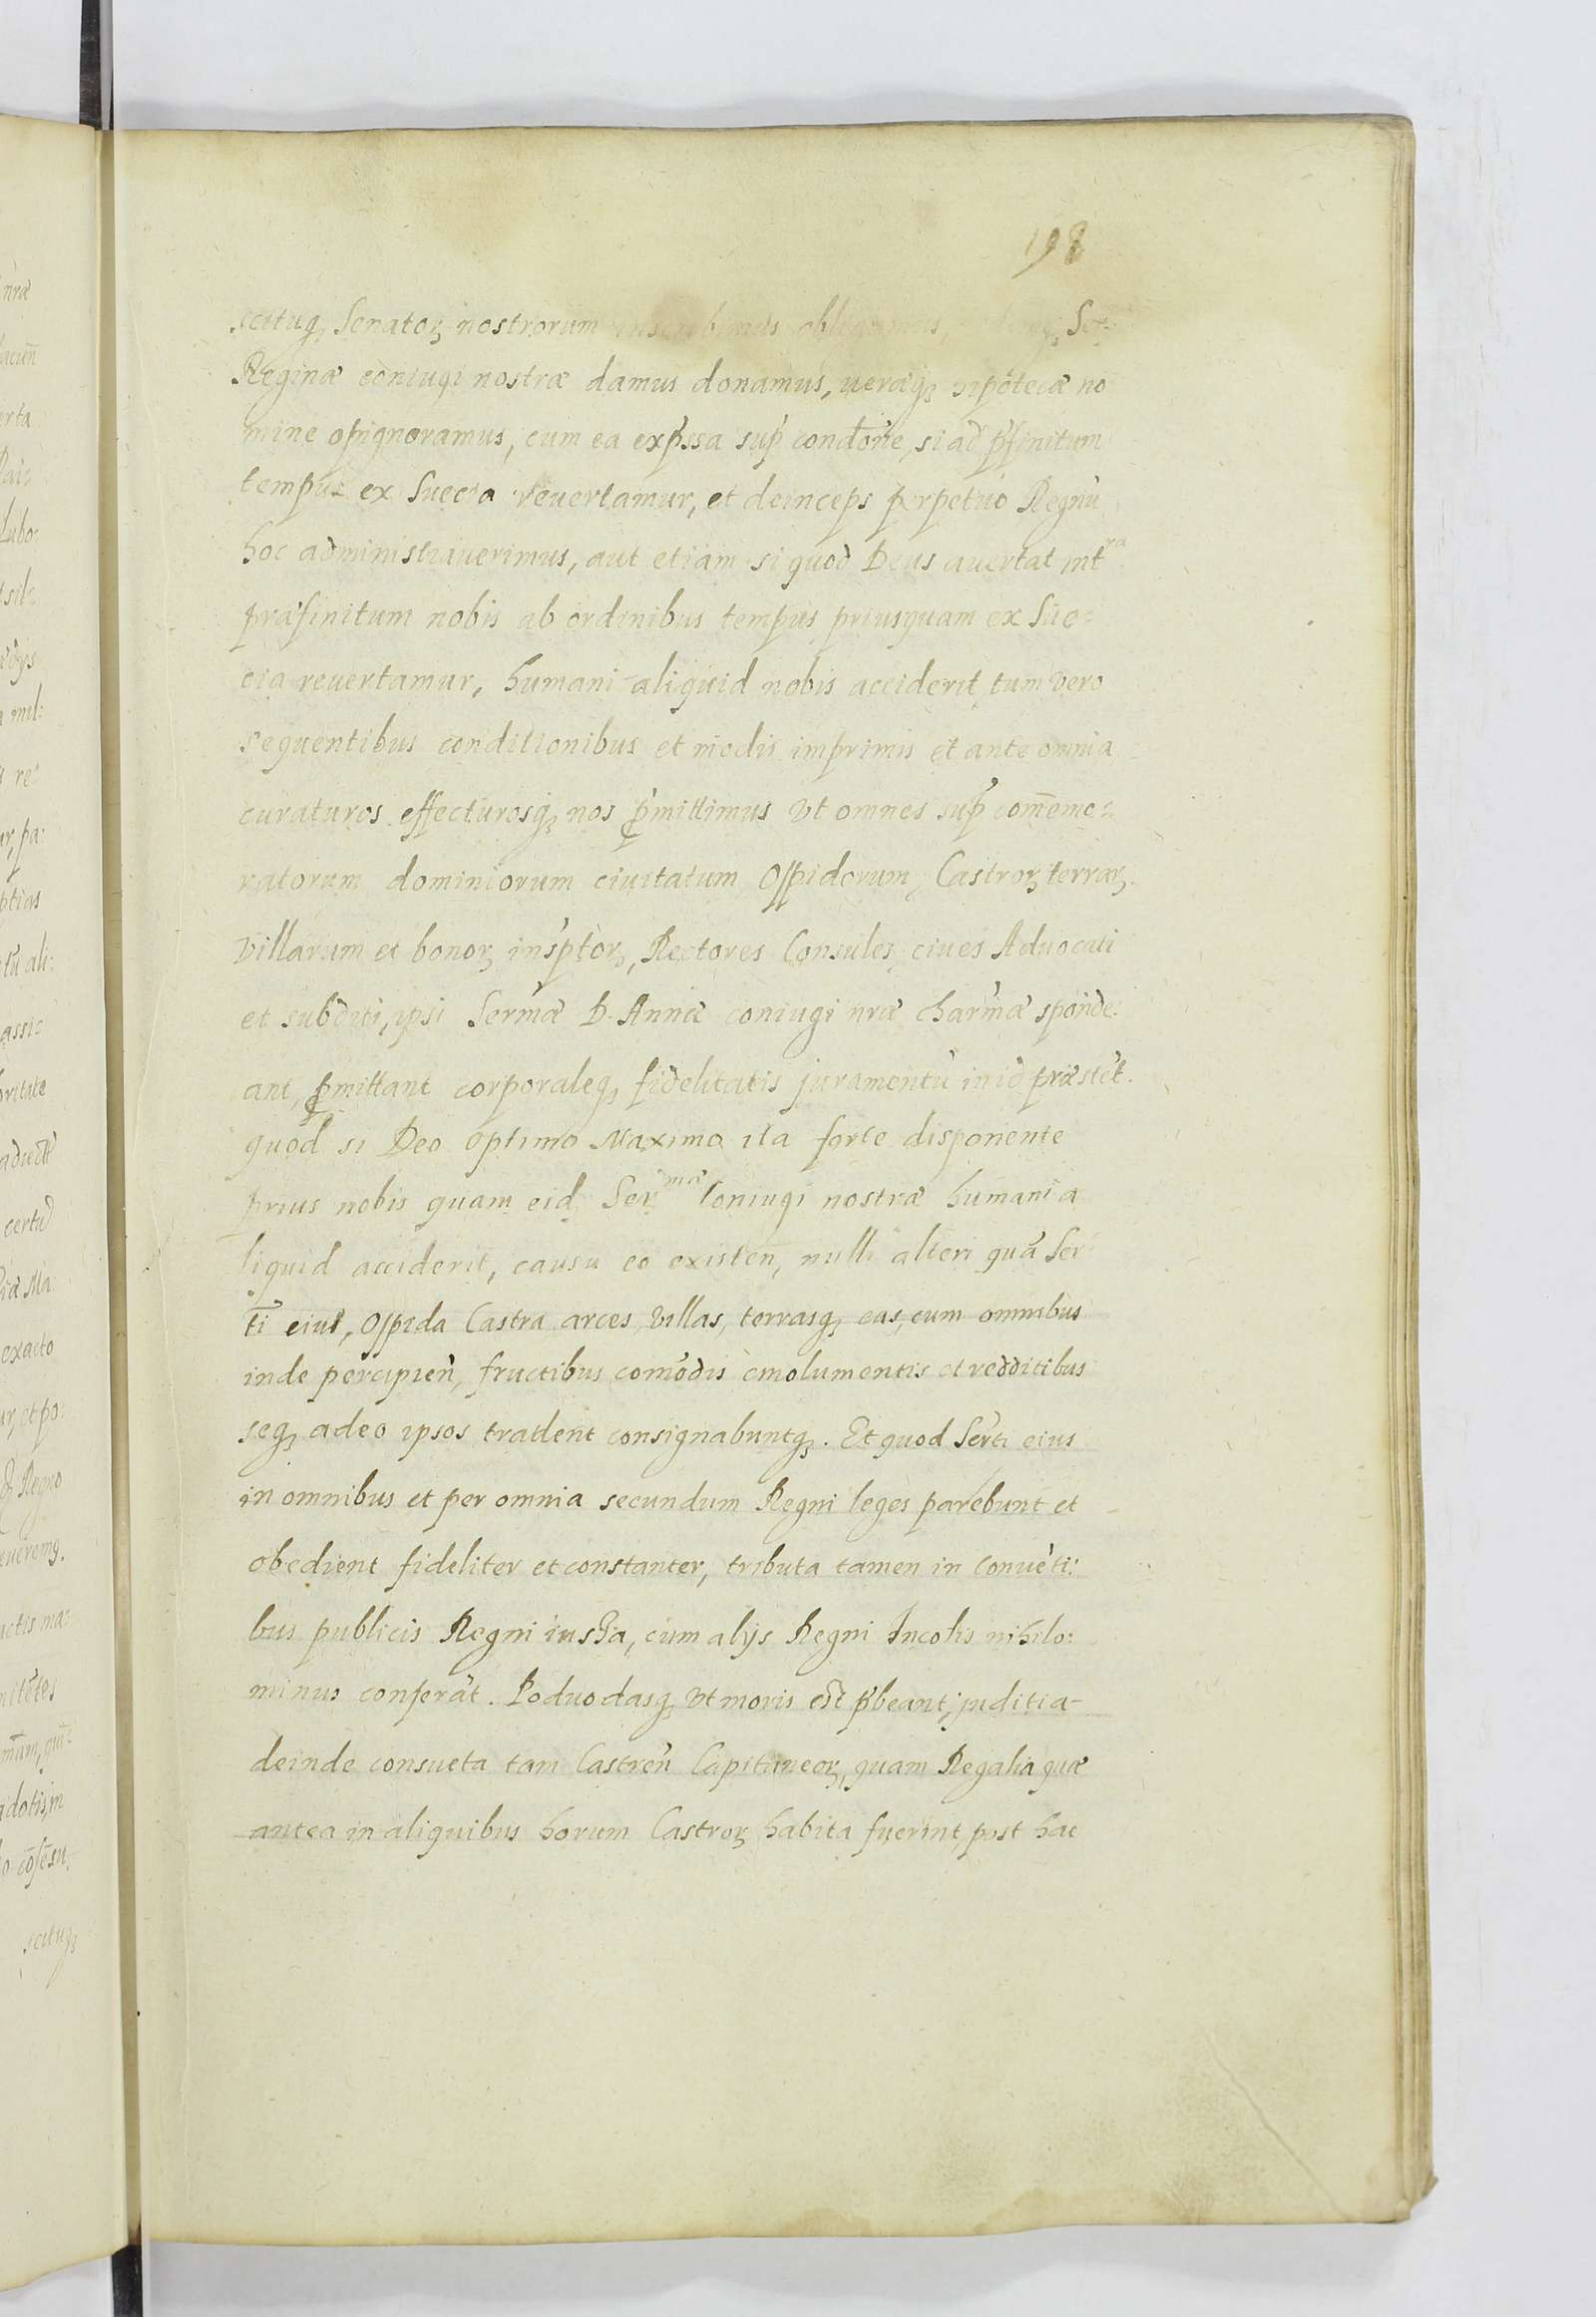 198
scituq₃ Senatoꝝ nostrorum inscribimus obligamus, Ser:
Reginæ coniugi nostræ damus donamus, ueræq₃ hipotecæ no
mine opignoramus, cum ea exp̃ssa sup̃ condõne, si ad p̃finitum
tempus ex Suecia reuertamur, et deinceps perpetuo Regnũ
hoc administrauerimus, aut etiam si quod Deus auertat intra
præfinitum nobis ab ordinibus tempus priusquam ex Sue=
cia reuertamur, humani aliquid nobis acciderit, tum vero
sequentibus conditionibus et modis imprimis et ante omnia
curaturos effecturosq₃ nos ꝓmittimus vt omnes sup̃ com̃emo=
ratorum dominiorum ciuitatum Oppidorum, Castroꝝ terraꝝ
villarum et bonoꝝ insp̃toꝝ, Rectores Consules, ciues Aduocati
et subditi, ipsi Serm̃æ D. Annæ coniugi nr̃æ charm̃æ sponde:
ant, ꝓmittant corporaleq₃ fidelitatis juramentũ in id præstẽt.
quod si Deo optimo Maximo ita forte disponente
prius nobis quam eid. Ser mæ Coniugi nostræ humani a
liquid acciderit, causu eo existeñ, nulli alteri quã Ser
tĩ eius, Oppida Castra arces, villas, terrasq₃ eas, cum omnibus
inde percipieñ, fructibus com̃odis emolumentis et redditibus
seq₃ adeo ipsos tradent consignabuntq₃. Et quod Serti eius
in omnibus et per omnia secundum Regni leges parebunt et
obedient fideliter et constanter, tributa tamen in Conuẽti:
bus publicis Regni iusta, cum alijs Regni Incolis nihilo:
minus conferãt. Poduodasq₃ vt moris est p̃beant, juditia
deinde consueta tam Castreñ Capitaneoꝝ, quam Regalia quæ
antea in aliquibus horum Castroꝝ habita fuerint, post hac